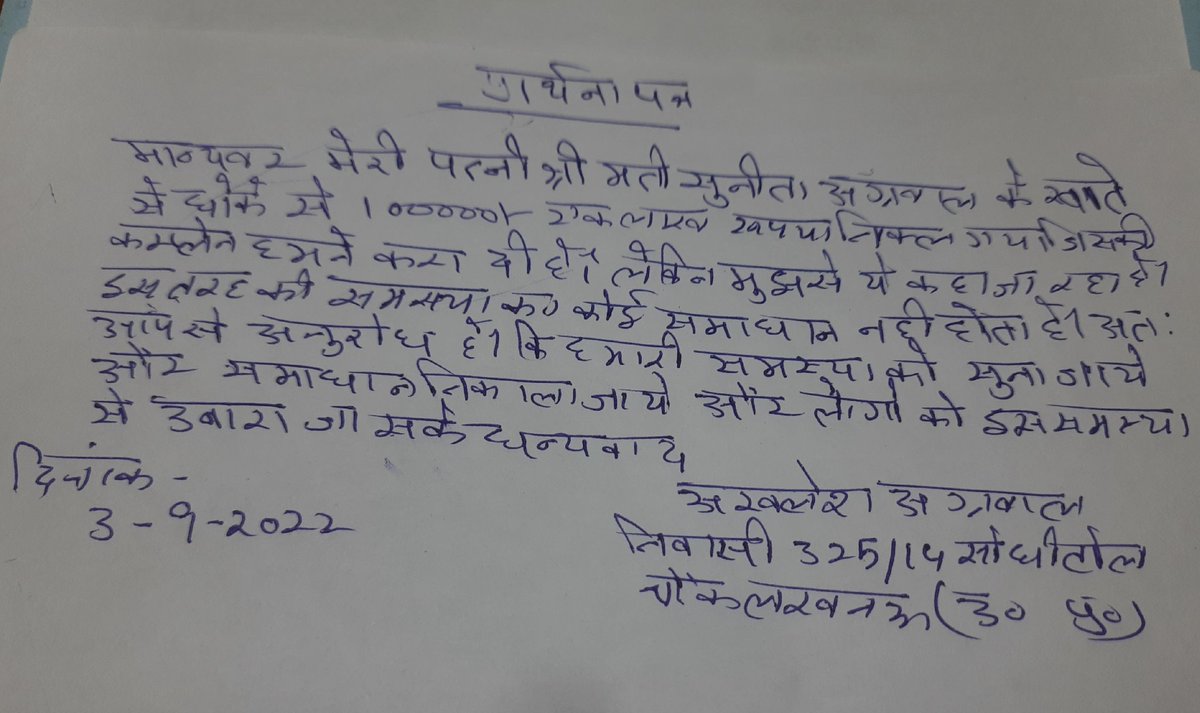 प्रार्थना पत्र
मान्यवर मेरी पत्नी श्री मती सुनीता अग्रवाल के खाते
से धोके से 1000000/- एक लाख रूपया निकल गया जिसकी
कम्प्लेन हमने करा दी है। लेकिन मुझसे ये कहा जा रहा है।
इस तरह की समस्या का कोई समाधान नही होता है। अतः
आपसे अनुरोध है। कि हमारी समस्या को सुना जाये
और समाधान निकाला जाये और लोगो को इस समस्या
से उबारा जा सके धन्यवाद
दिनांक -
3-9-2022
अखलेश अग्रवाल
निवासी 325/14 सोधीटोला
चौक लखनऊ (उ० प्र०)